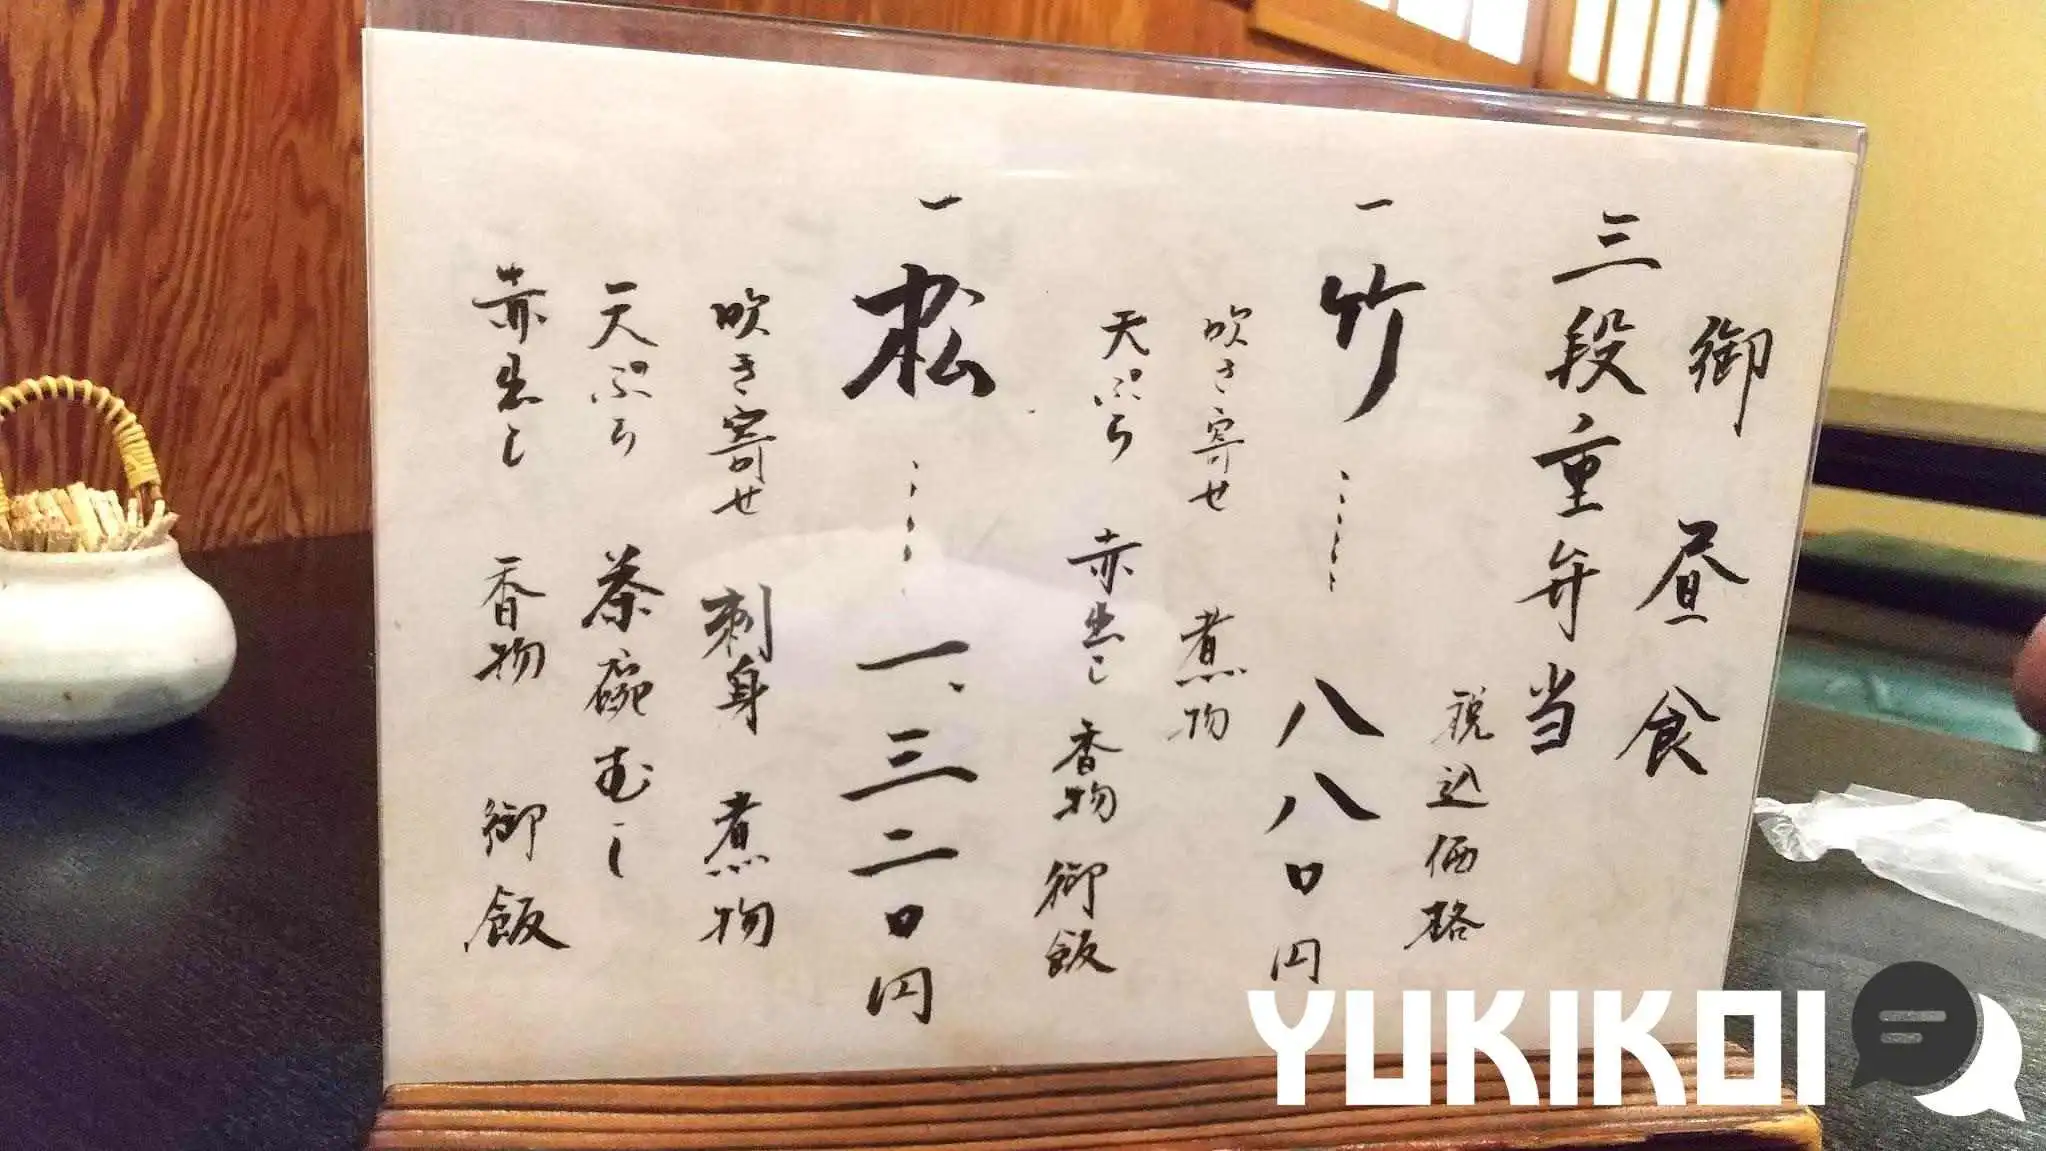 御昼食
三段重弁当
税込価格
一 竹 …… 八八〇円
吹き寄せ 煮物
天ぷら 赤出し 香物 御飯
一 松 …… 一、三二〇円
吹き寄せ 刺身 煮物
天ぷら 茶碗むし
赤出し 香物 御飯
YUKIKOI